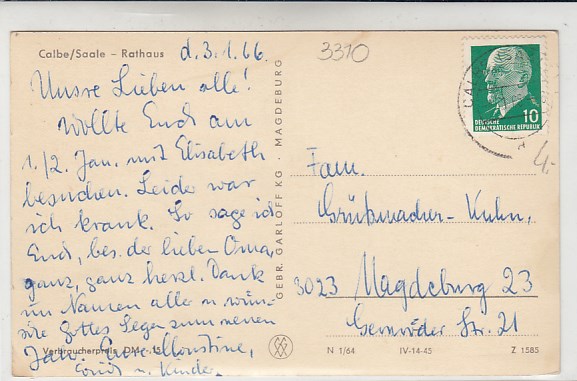 Calbe/Saale – Rathaus
d. 3.1.66
3310
Unsre Lieben alle!
Wollte Euch am
1./2. Jan. mit Elisabeth
besuchen. Leider war
ich krank. So sage ich
Euch, bes. der lieben Oma,
ganz, ganz herzl. Dank
im Namen aller u. wün-
sche Gottes Segen zum neuen
Jahr. Eure
Ernst u. Kinder.
Verbraucherpreis DM
GEBR. GARLOFF KG · MAGDEBURG
10
DEUTSCHE
DEMOKRATISCHE REPUBLIK
4.-
Fam.
Grützmacher-Kuhn,
3023 Magdeburg 23
Gernröder Str. 21
N 1/64 IV-14-45 Z 1585